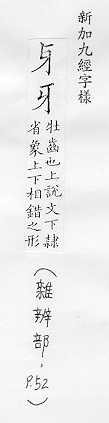 新加九經字樣
㸦牙
牡齒也上說文下隸
省象上下相錯之形
(雜辨部，P.52)